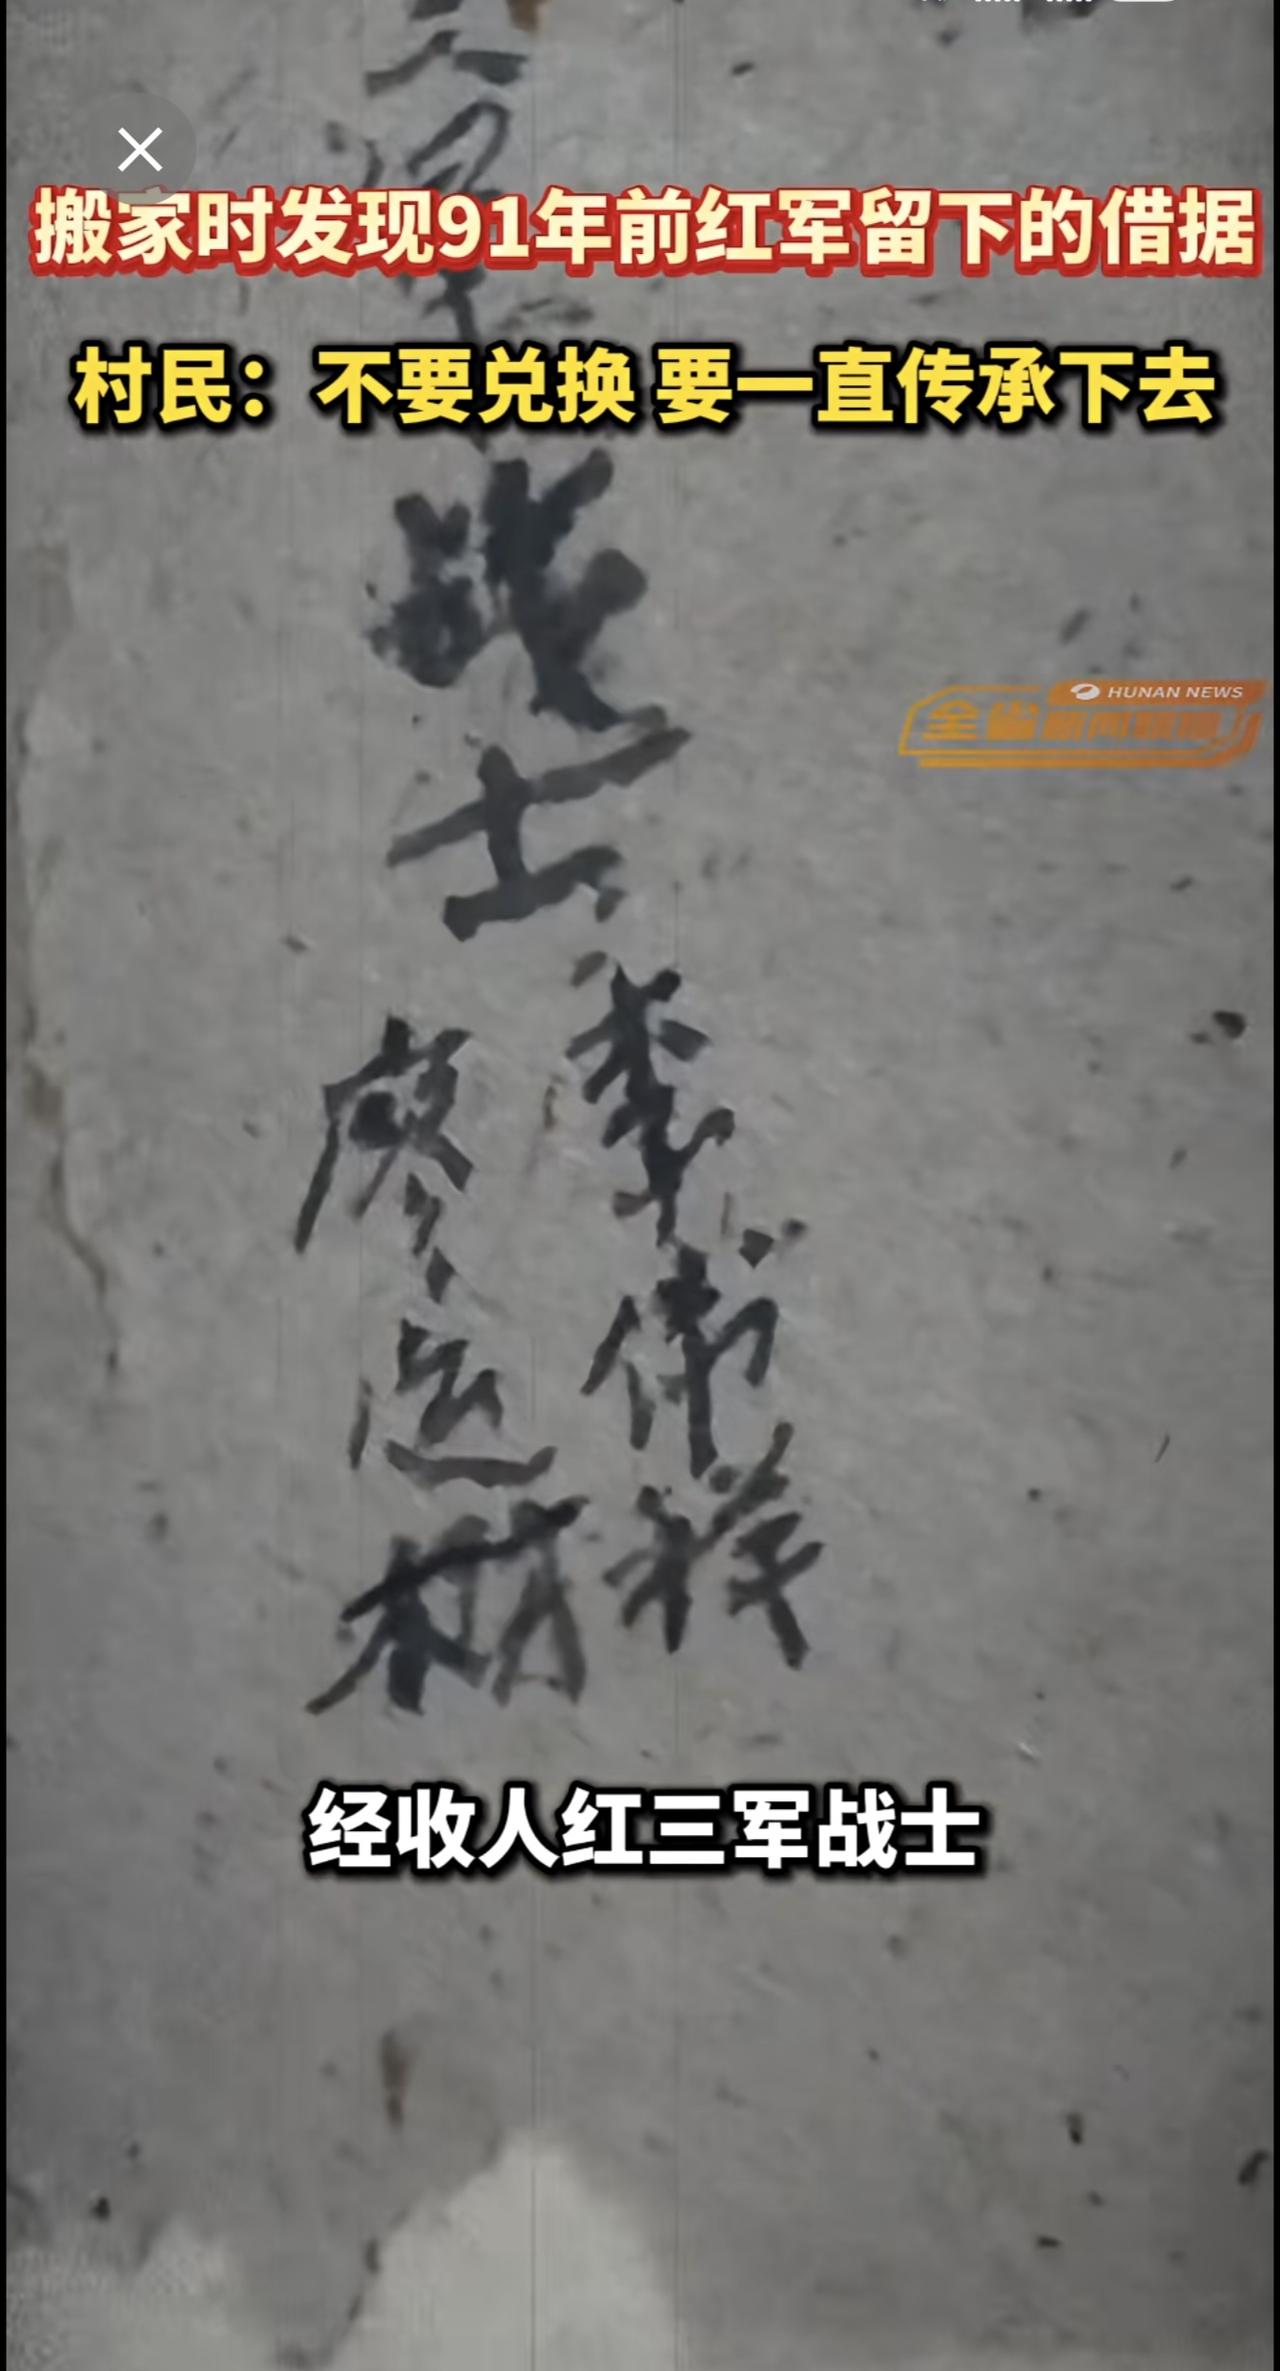 搬家时发现91年前红军留下的借据
村民：不要兑换 要一直传承下去
HUNAN NEWS
全省新闻联播
战士
李伟祥
廖运
经收人红三军战士